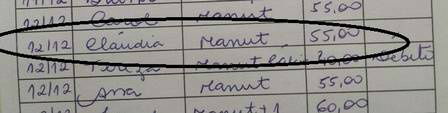 12/12 Carol Manut 55,00
12/12 Cláudia Manut 55,00
12/12 Tereza Manut 40,00 Débito
12/12 Ana Manut 55,00
Manut+1 60,00